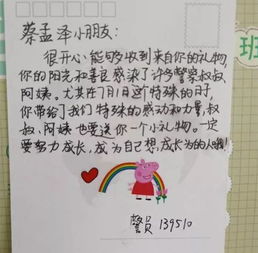 蔡孟泽小朋友:
很开心,能够收到来自你的礼物,
你的阳光和善良感染了许多警察叔叔、
阿姨。尤其在7月1日这个特殊的日子,
你带给了我们特殊的感动和力量,叔
叔、阿姨也要送你一个小礼物。一定
要努力成长,成为自己想成为的人哦!
警员 139510
班